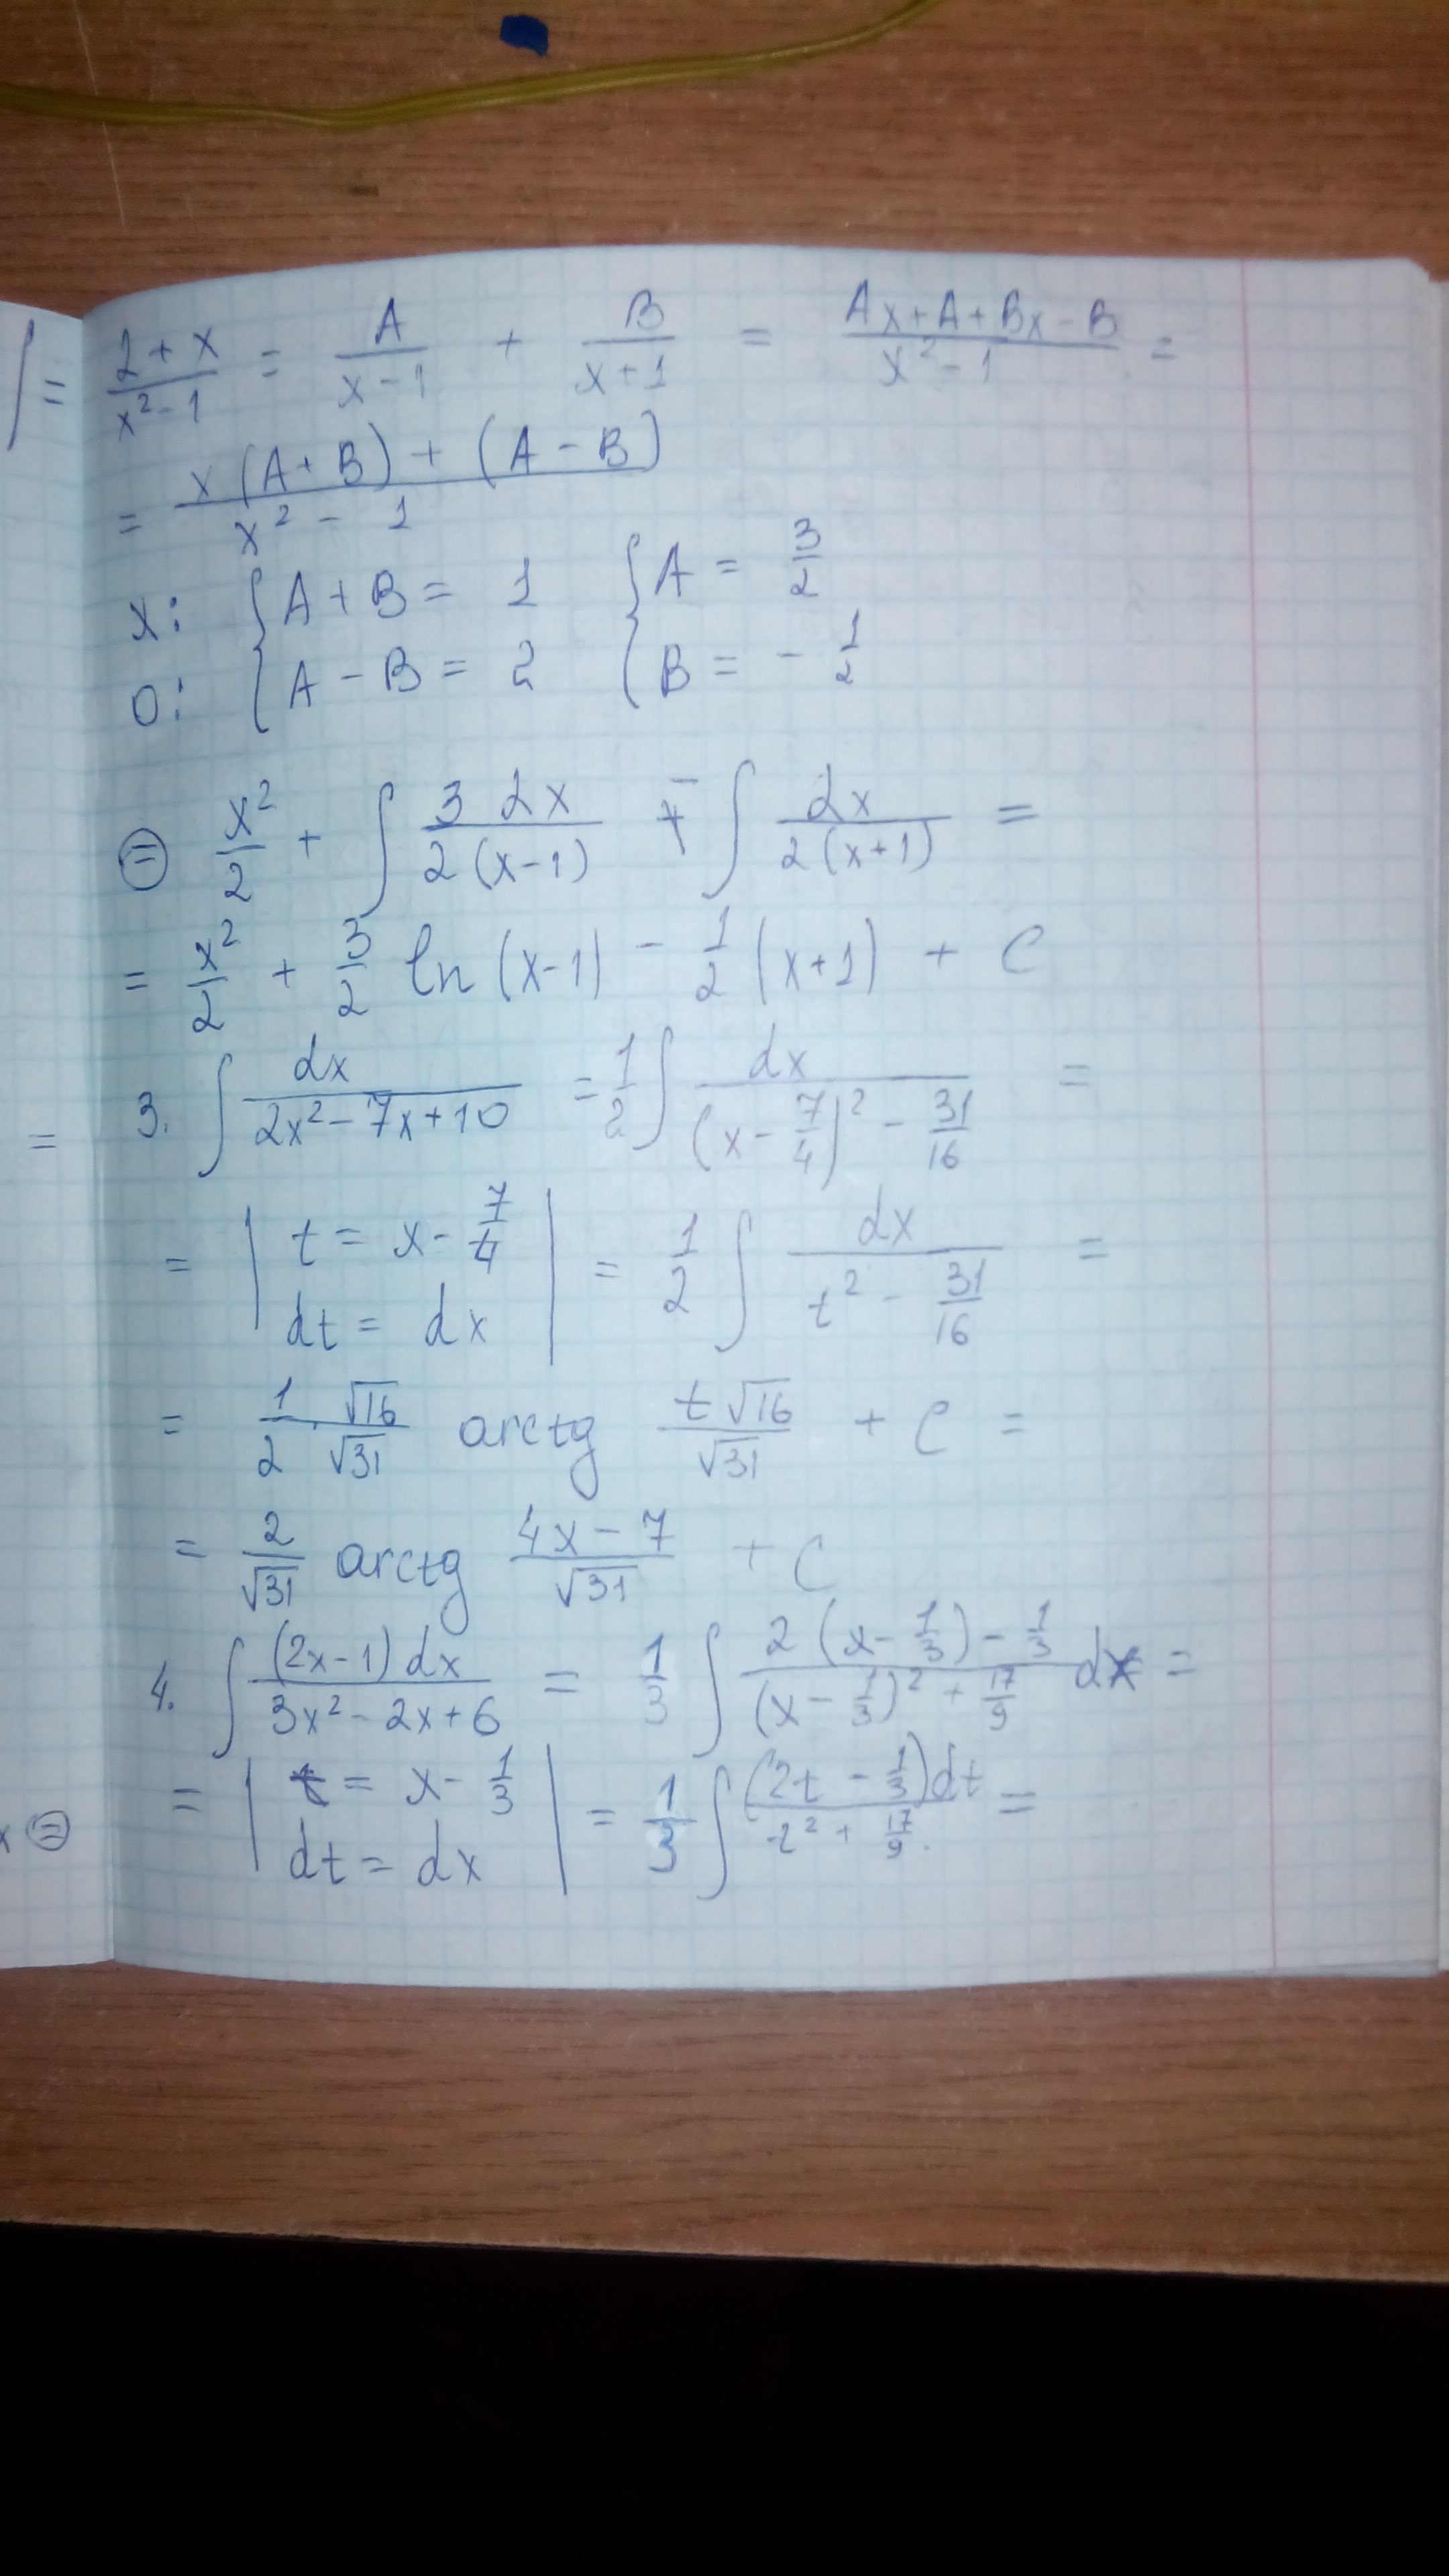 = (2+x)/(x²-1) = A/(x-1) + B/(x+1) = (Ax+A+Bx-B)/(x²-1) =
= (x(A+B)+(A-B))/(x²-1)
x: { A+B = 1 { A = 3/2
0: { A-B = 2 { B = - 1/2
⊜ x²/2 + ∫ (3 2x)/(2(x-1)) - ∫ 2x/(2(x+1)) =
= x²/2 + 3/2 ln(x-1) - 1/2 (x+1) + C
= 3. ∫ dx/(2x²-7x+10) = 1/2 ∫ dx/((x-7/4)² - 31/16) =
= | t = x - 7/4 | = 1/2 ∫ dx/(t² - 31/16) =
dt = dx
= 1/2 · √16/√31 arctg (t√16)/√31 + C =
= 2/√31 arctg (4x-7)/√31 + C
4. ∫ ((2x-1)dx)/(3x²-2x+6) = 1/3 ∫ (2(x-1/3)-1/3)/((x-1/3)²+17/9) dx =
= | t = x - 1/3 | = 1/3 ∫ ((2t-1/3)dt)/(t²+17/9) =
x ⊜ dt = dx